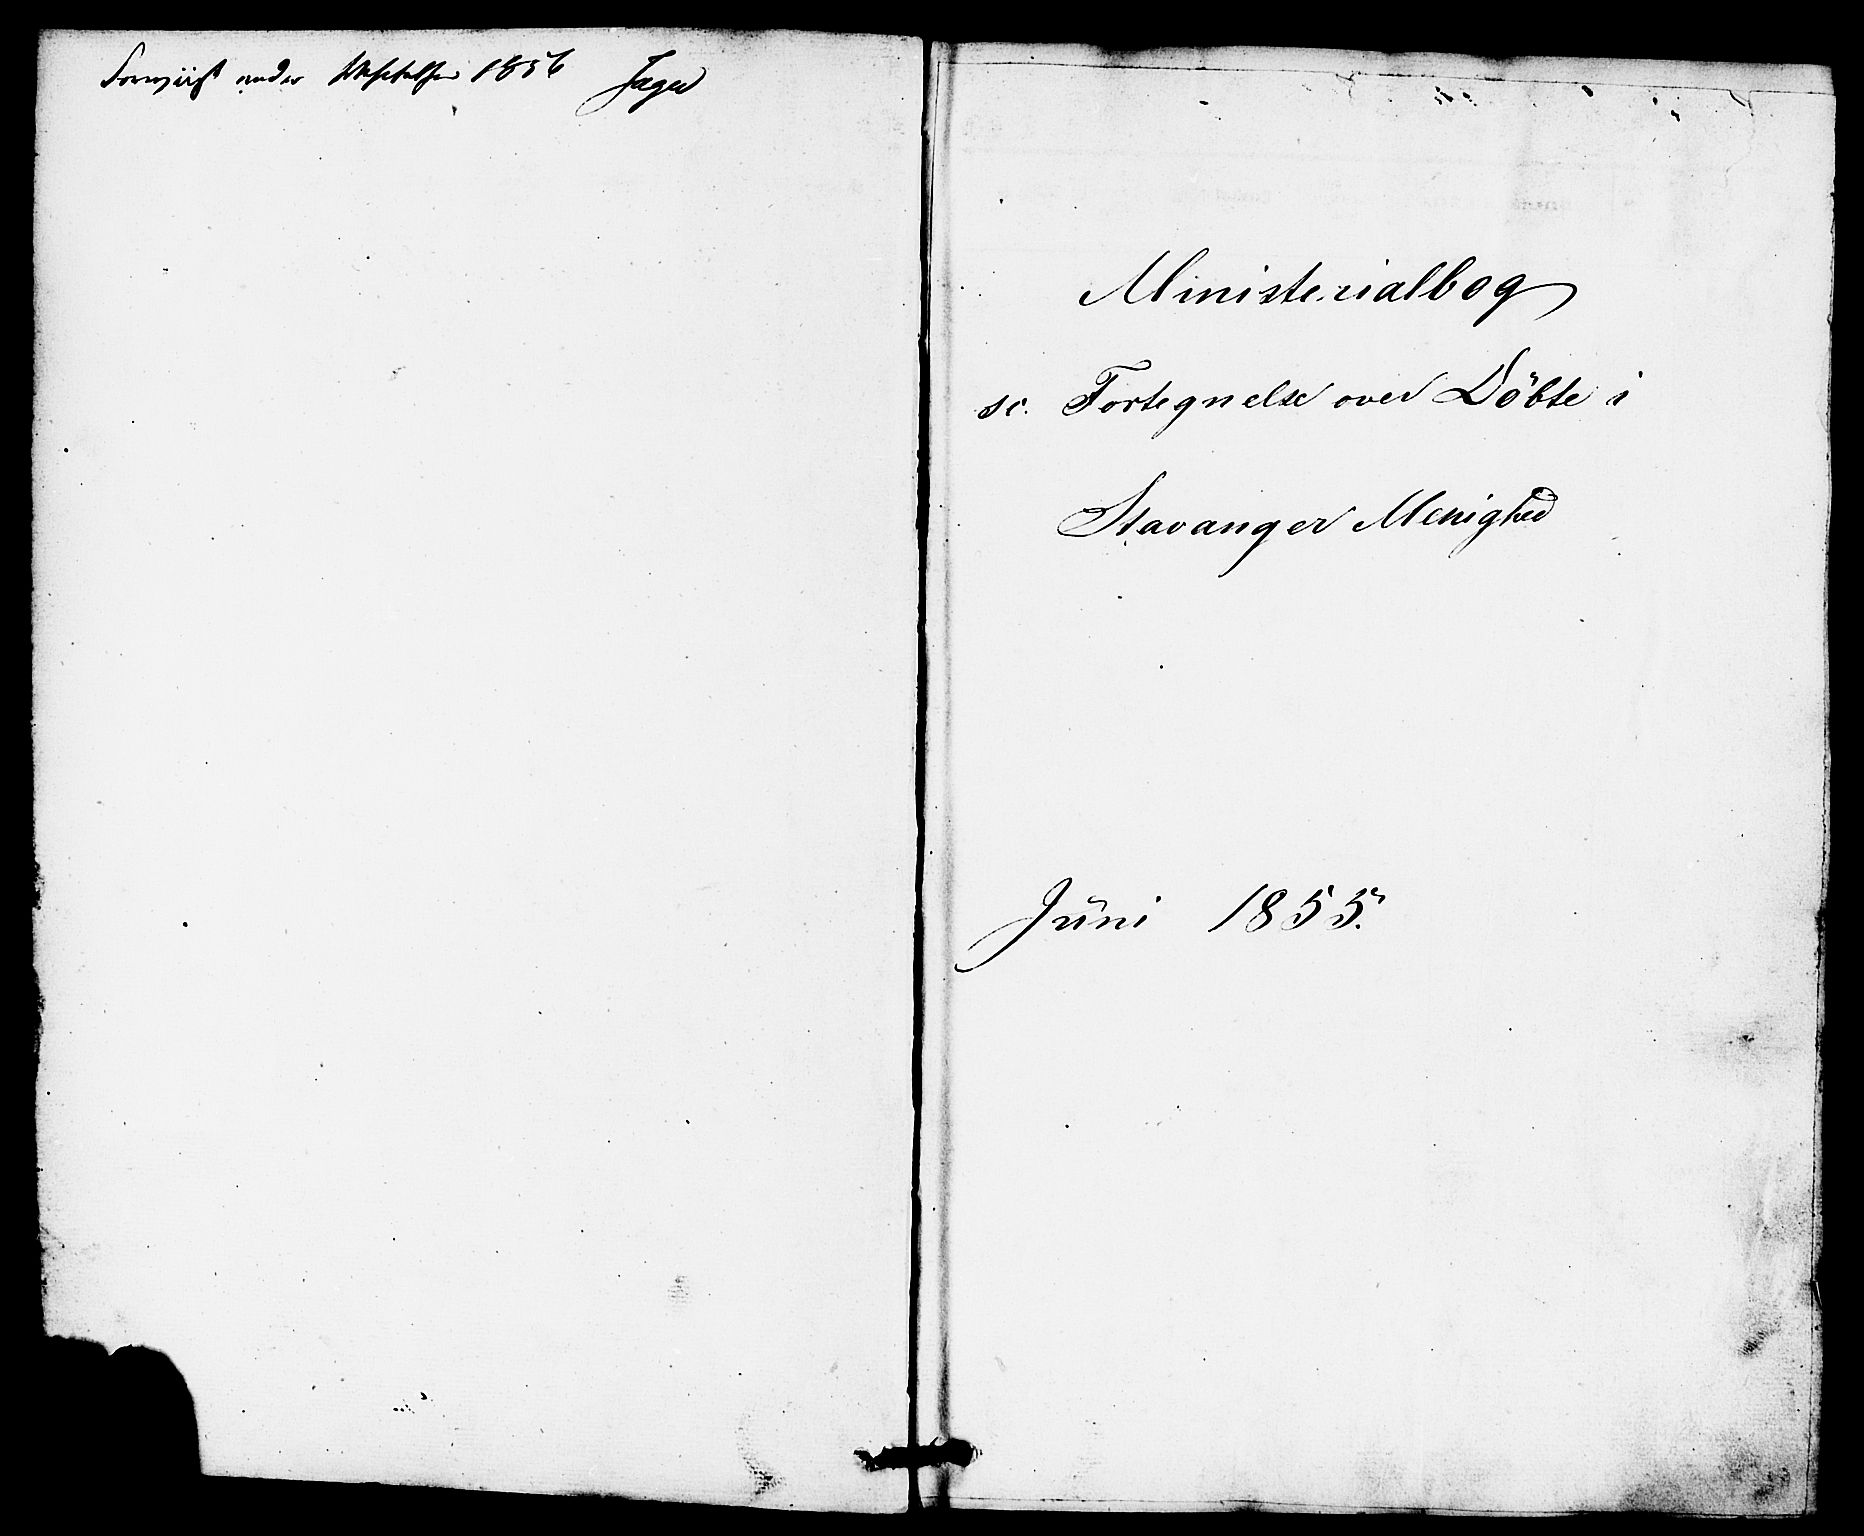 Foreviist under Visitatsen 1856 Jager
Ministerialbog
sc. Fortegnelse over Döbte i
Stavanger Menighed
Juni 1855.